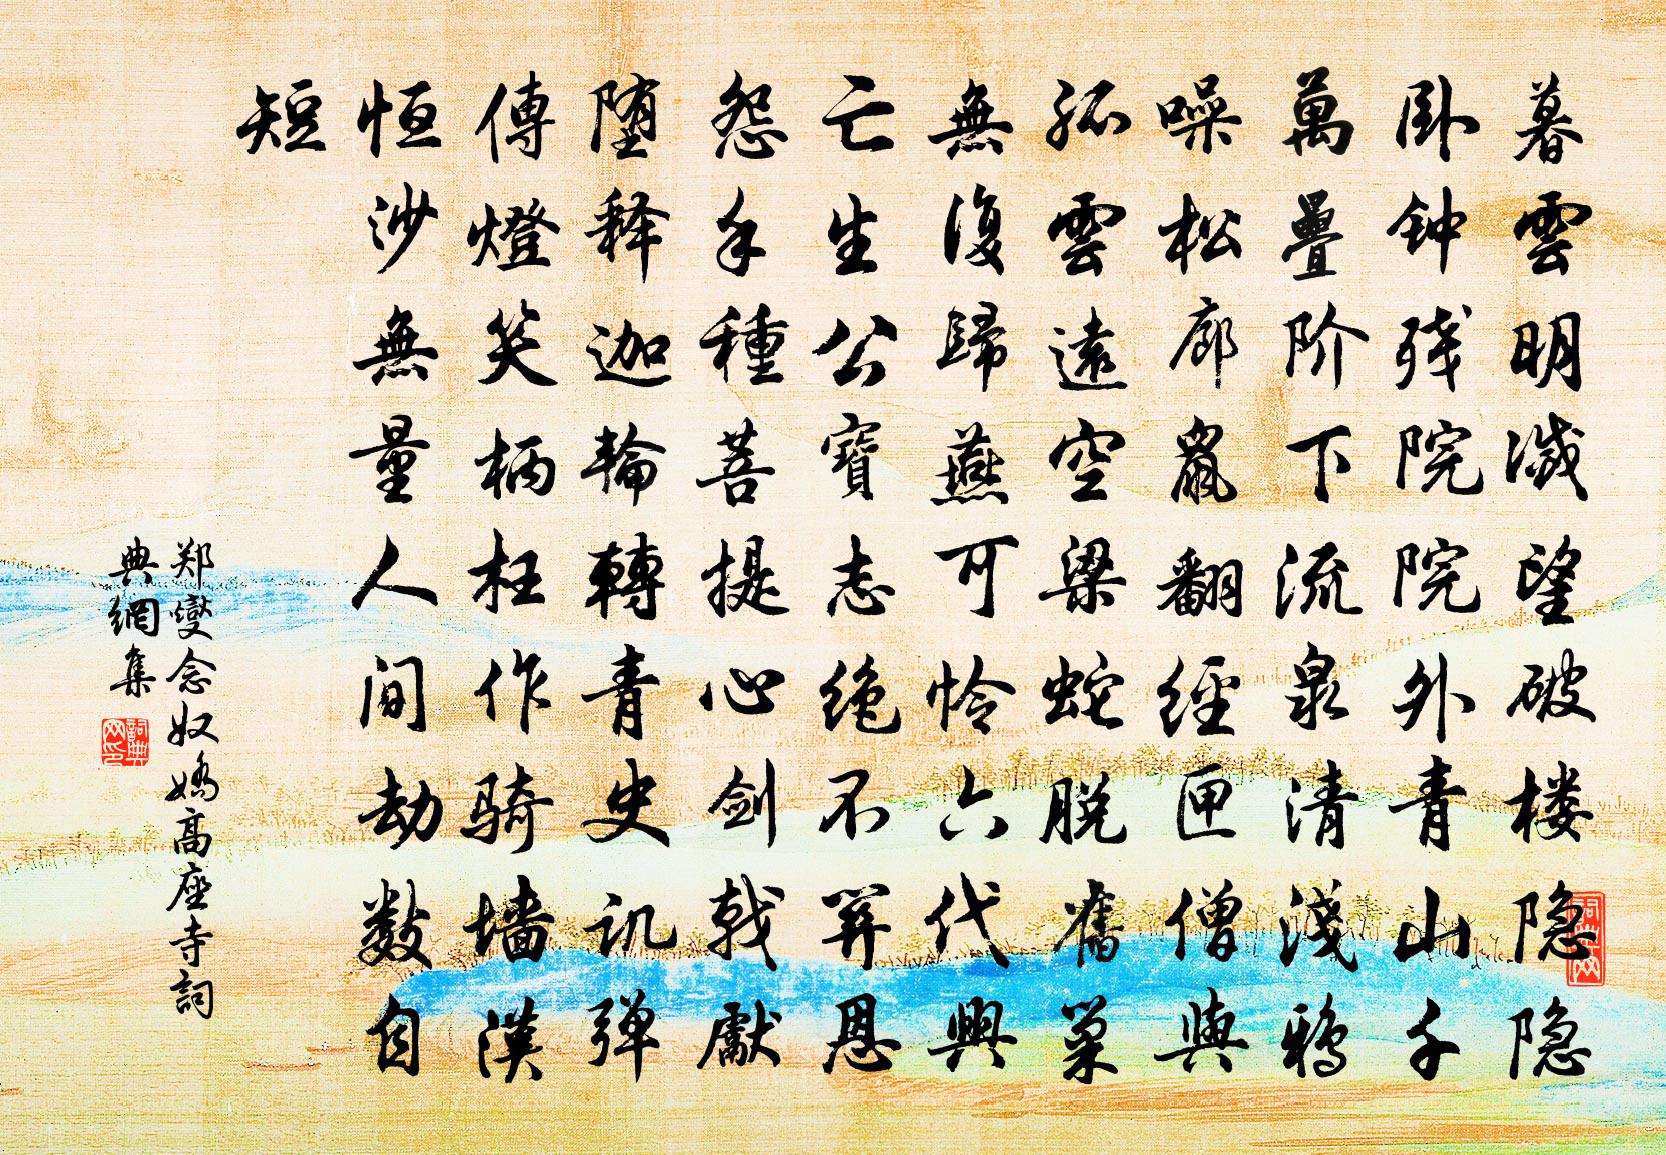 暮雲明滅望破楼隐隐
卧钟残院院外青山千
萬疊阶下流泉清淺鴉
噪松廊鼠翻經匣僧與
孤雲遠空梁蛇脱舊巢
無復歸燕可怜六代興
亡生公寶志绝不關恩
怨手種菩提心剑戟獻
堕释迦輪轉青史讥弹
傳燈笑柄枉作骑墙漢
恒沙無量人间劫数自
短
郑燮念奴嬌高座寺詞
典網集